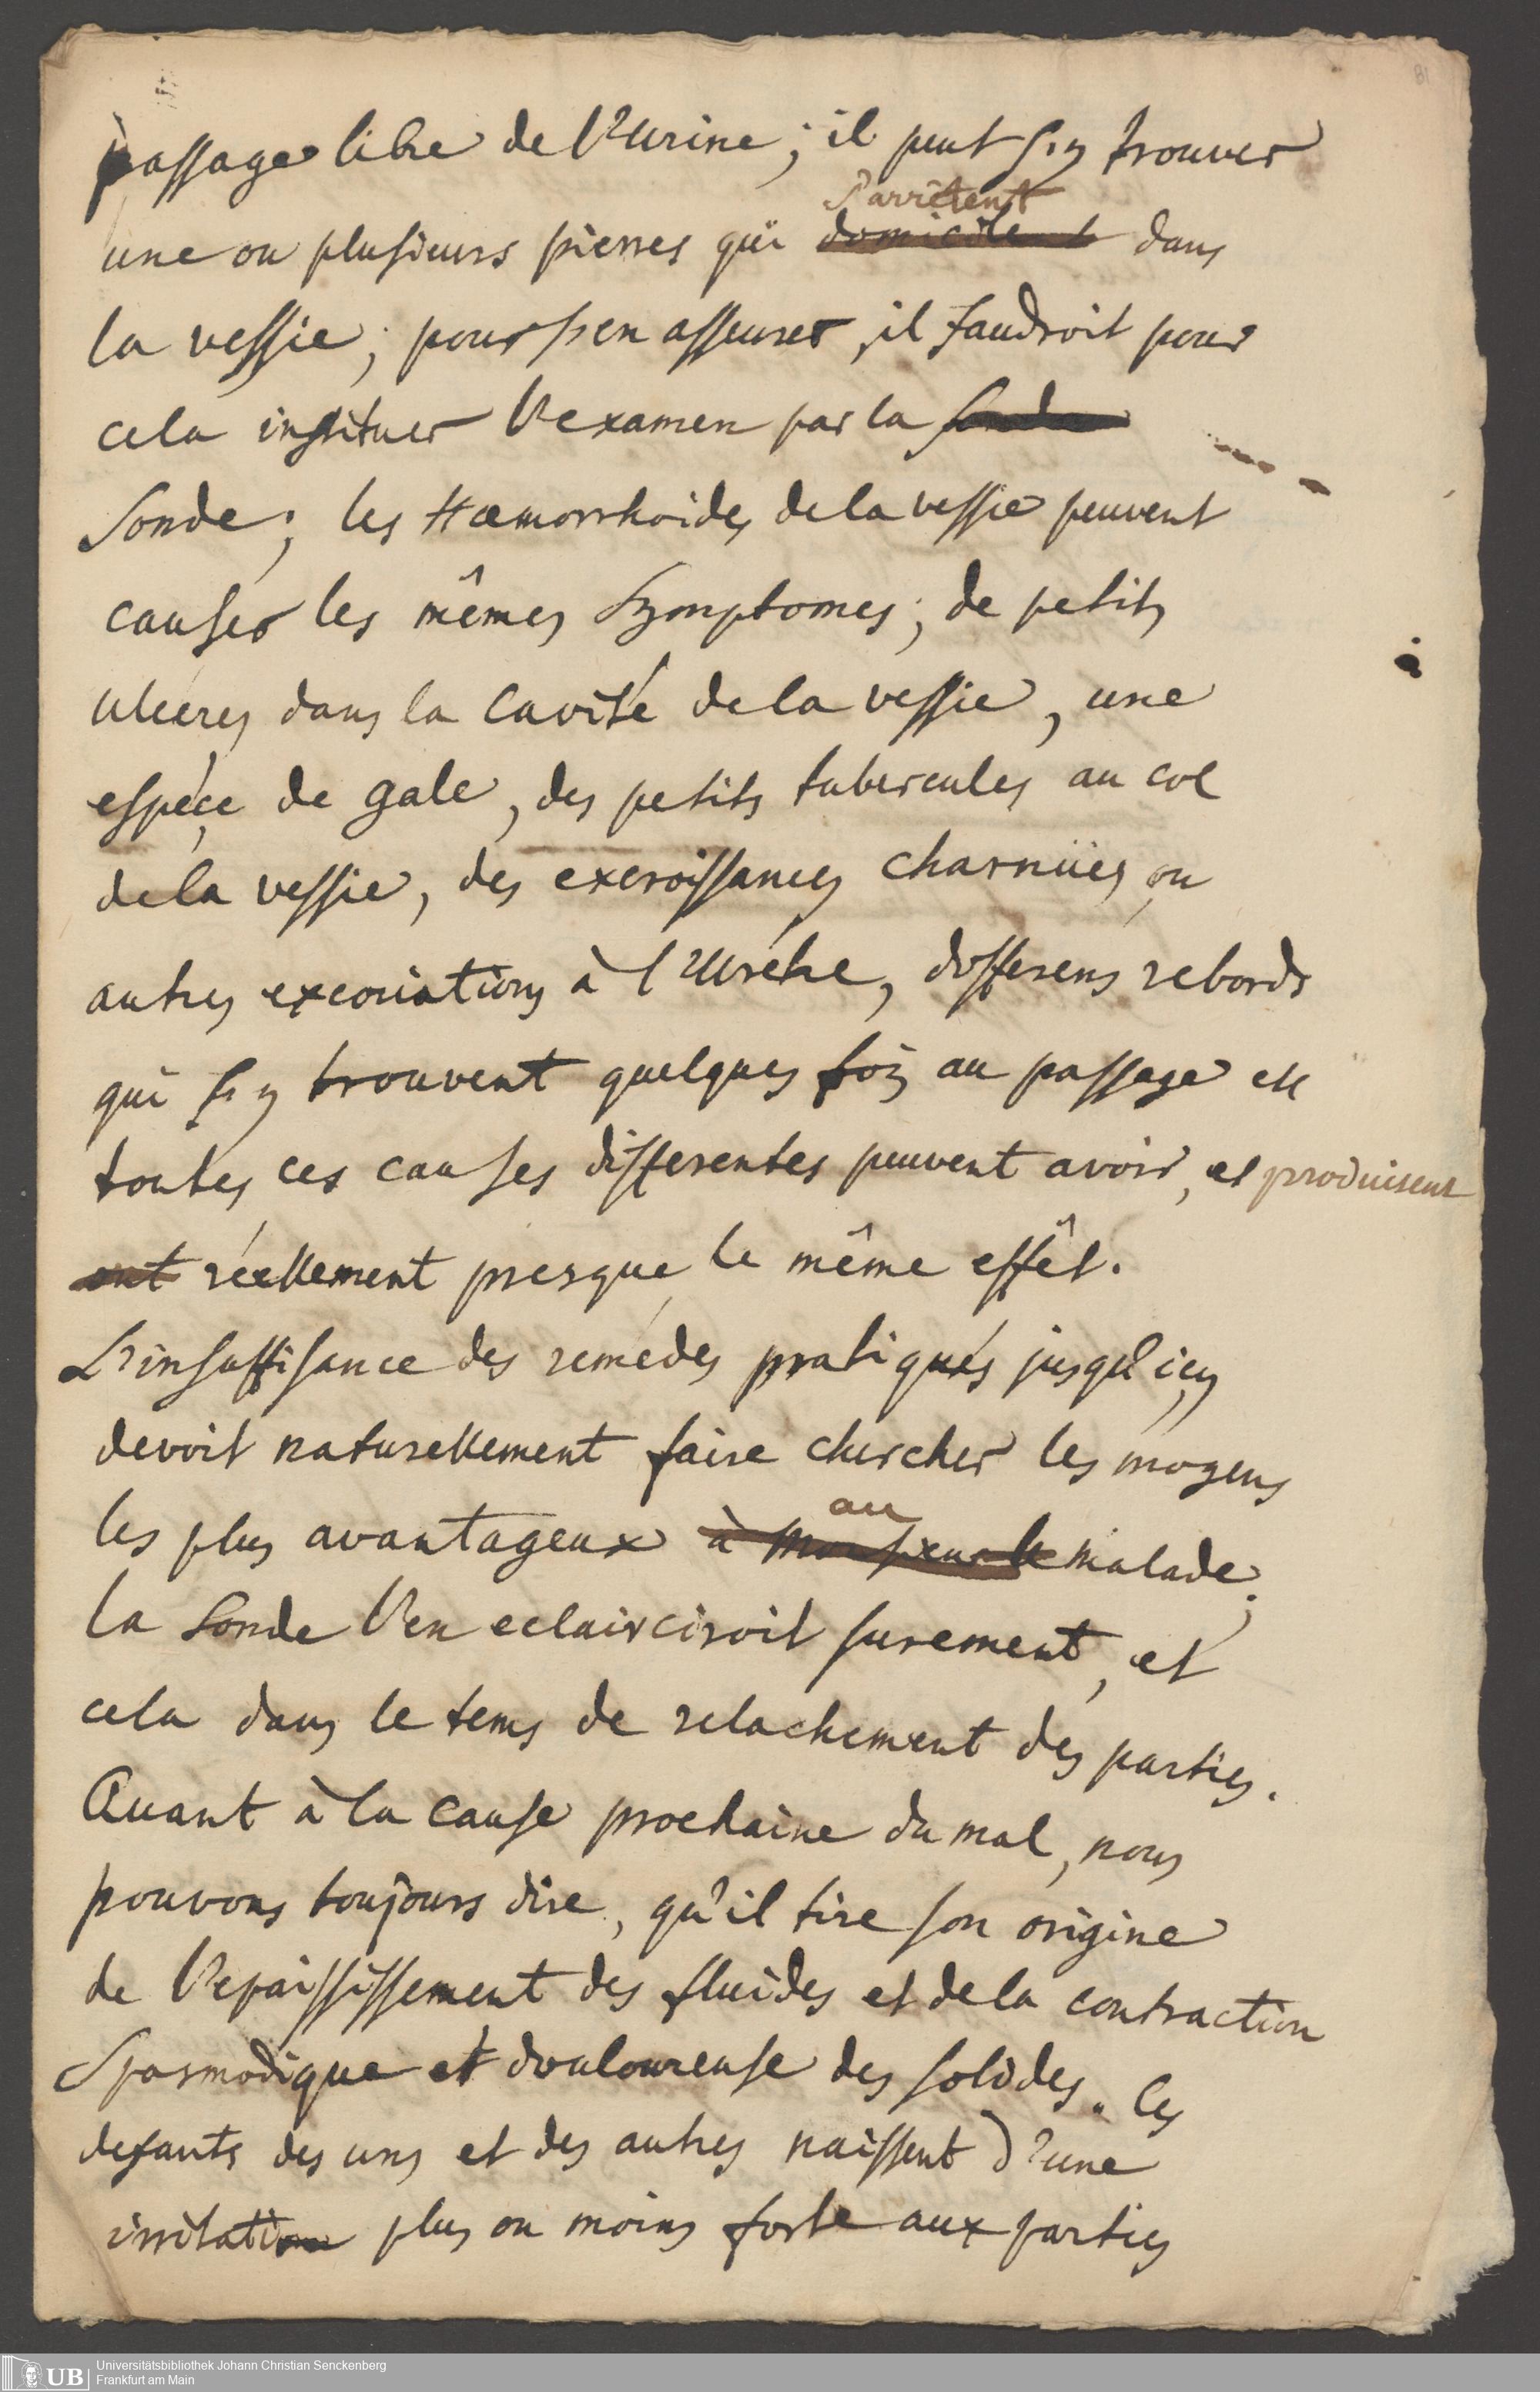 81
passage libre de l'Urine; il peut s'y trouver
s'arrêtent
une ou plusieurs pierres qui domicilent dans
la vessie; pour s'en asseurer, il faudroit pour
cela instituer l'examen par la sonde
Sonde; les Hæmorrhoides de la vessie peuvent
causer les mêmes Symptomes; de petits
ulcéres dans la cavité de la vessie, une
espéçe de gale, des petits tubercules au col
de la vessie, des excroissances charnües ou
autres excoriations à l'Uréhre, differens rebords
qui s'y trouvent quelques fois au passage etc
toutes ces causes differentes peuvent avoir, et produisent
ont réellement presque le même effêt.
L'insuffisance des remédes pratiqués jusqu'icy
devoit naturellement faire chercher les moyens
au
les plus avantageux à Monsieur le malade;
la Sonde l'en eclairciroit surement, et
cela dans le tems de relachement des parties.
Quant à la cause prochaine du mal, nous
pouvons toujours dire, qu'il tire son origine
de l'epaississement des fluides et de la contraction
Spasmodique et douloureuse des solides. les
defauts des uns et des autres naissent d'une
irritation plus ou moins forte aux parties
UB
Universitätsbibliothek Johann Christian Senckenberg
Frankfurt am Main